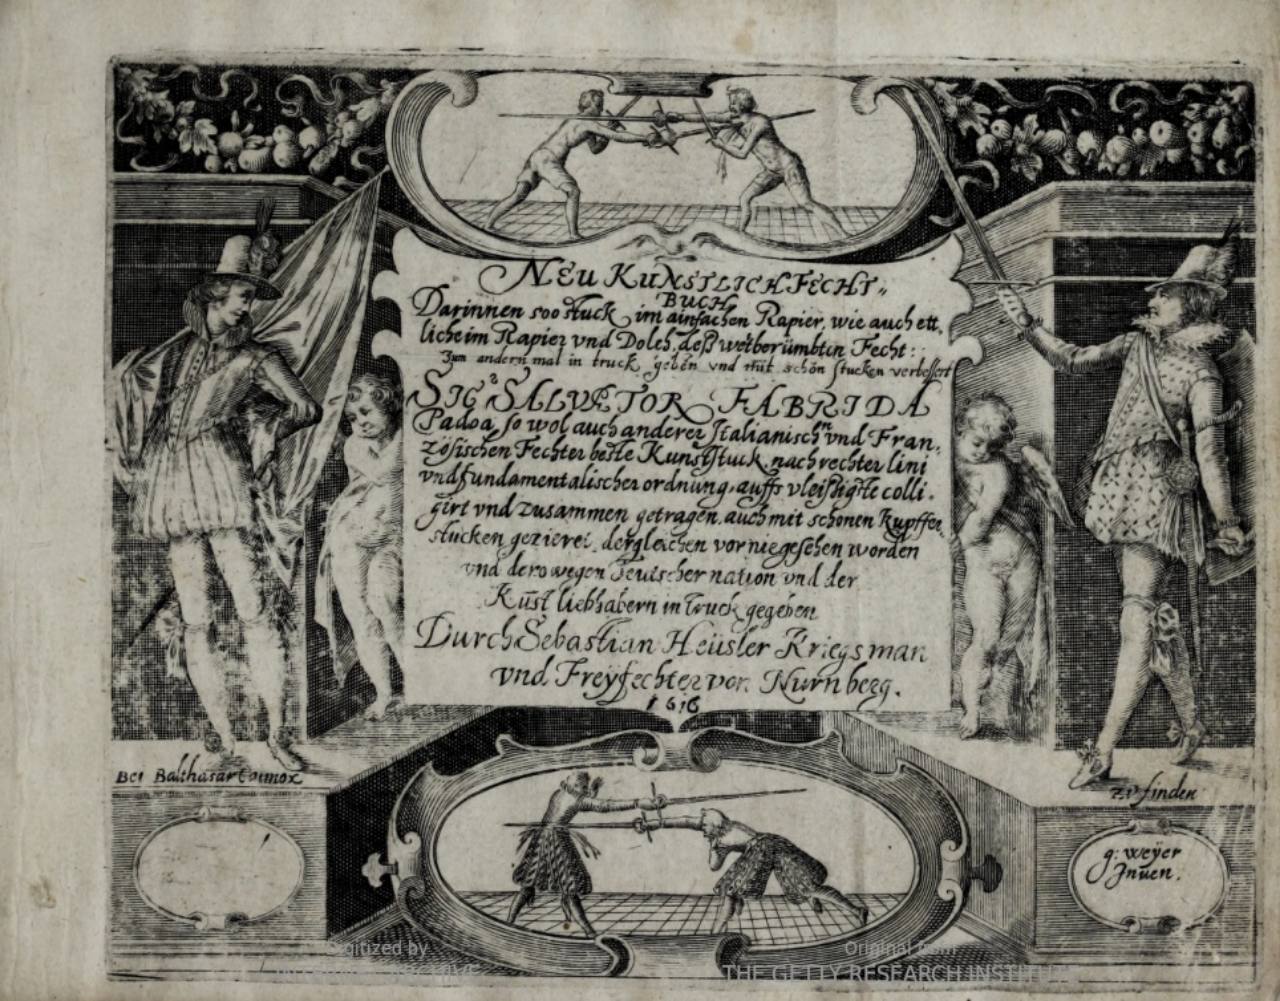 NEU KUNSTLICH FECHT=
BUCH
Darinnen 500 stuck im ainfachen Rapier, wie auch ett
liche im Rapier vnd Dolch, deß weitberümbten Fecht:
Zum andern mal in truck geben vnd mit schön stucken verbessert
SIGʳ SALVATOR FABRI DA
Padoa, so wol auch anderer Italianischⁿ vnd Fran.
zösischen Fechter beste Kunststuck, nach rechter lini
vnd fundamentalischer ordnung, auffs vleißigste colli.
girt vnd zusammen getragen, auch mit schönen kupffer
stucken gezieret, dergleichen vor nie gesehen worden
vnd derowegen Teutscher nation vnd der
Kust liebhabern in Truck gegeben
Durch Sebastian Heüsler Kriegsman
vnd Freyfechter von Nürnberg.
1616
Bei Balthasar Caimox
zu finden
g: weÿer
Inuen.
Digitized by
INTERNET ARCHIVE
Original from
THE GETTY RESEARCH INSTITUTE